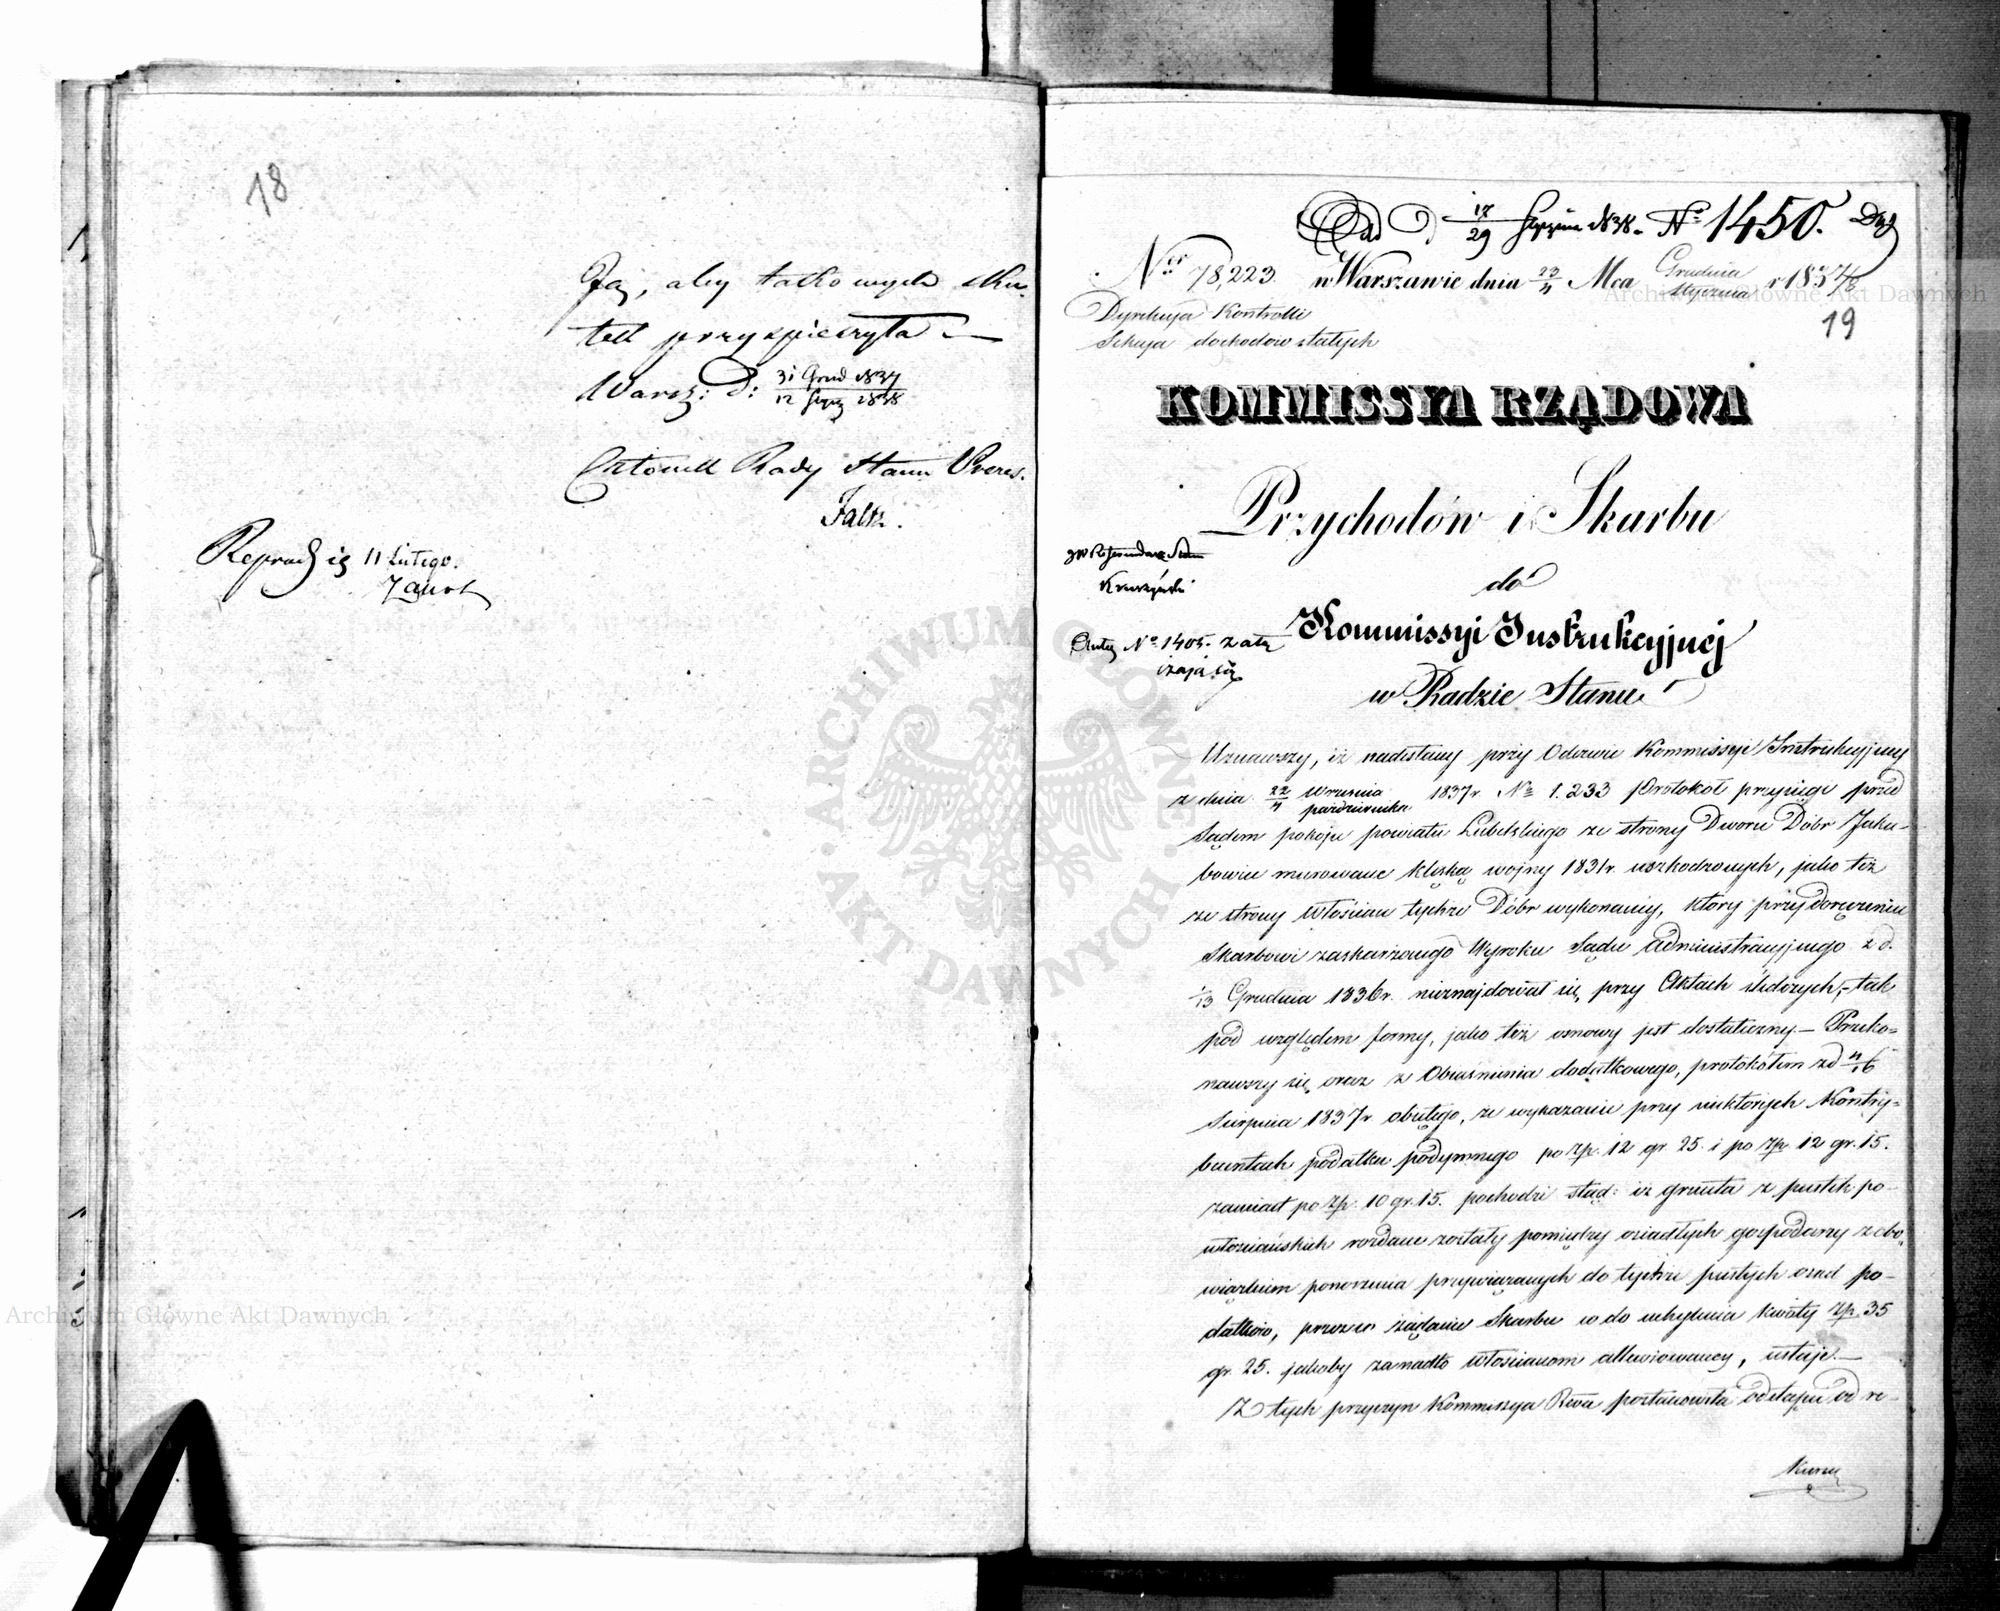 18
Jej, aby takowych sku-
tek przyspieszyła
Warsz: d: 31 Grud 1837
12 Stycz 1838
Członek Rady Stanu Prezes.
Faltz.
11 Lutego.
d 17/29 Stycznia 1838. N° 1450.
Nr 78,223. w Warszawie dnia 23/4 Mca Grudnia/Stycznia r 1837/8
19
Dyrekcya Kontrolli
Sekcya dochodów stałych
KOMMISSYA RZĄDOWA
Przychodów i Skarbu
do
Kommissyi Instrukcyjnej
w Radzie Stanu
JW Referendarz Stanu
Kruszyński
N° 1405. załą
czają się
Uznawszy, iż nadesłany przy Odezwie Kommissyi Instrukcyjnej
z dnia 22/4 Września/października 1837 r. N° 1.233 Protokół przysięgi przed
Sądem pokoju powiatu Lubelskiego ze strony Dworu Dóbr Jaku-
bowice murowane klęską wojny 1831 r. uszkodzonych, jako też
ze strony Włościan tychże Dóbr wykonanej, który przy doręczeniu
Skarbowi zaskarżonego Wyroku Sądu Administracyjnego z d.
1/13 Grudnia 1836 r. nieznajdował się przy Aktach śledczych, tak
pod względem formy, jako też osnowy jest dostateczny – Przeko-
nawszy się oraz z Obiaśnienia dodatkowego, protokółem z d 4/16
Sierpnia 1837 r objętego, że wykazanie przy niektórych Kontry-
buentach podatku podymnego po zp. 12 gr. 25. i po zp. 12 gr. 15.
zamiast po zp. 10 gr. 15. pochodzi stąd: iż grunta z pustek po-
włościańskich rozdane zostały pomiędzy osiadłych gospodarzy z obo-
wiązkiem ponoszenia przywiązanych do tychże pustych osad po-
datków, przez co żądanie Skarbu co do uchylenia kwoty zp. 35
gr. 25. jakoby zanadto włościanom allewiowanej, ustaje. –
Z tych przyczyn Kommissya Rzwa postanowiła odstąpić od re-